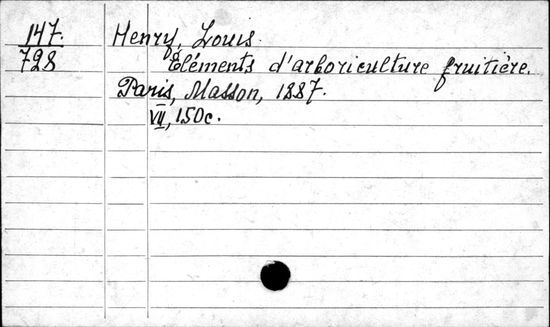 147.
728
Henry, Louis.
Eléments d'arboriculture fruitière.
Paris, Masson, 1887.
VII, 150c.